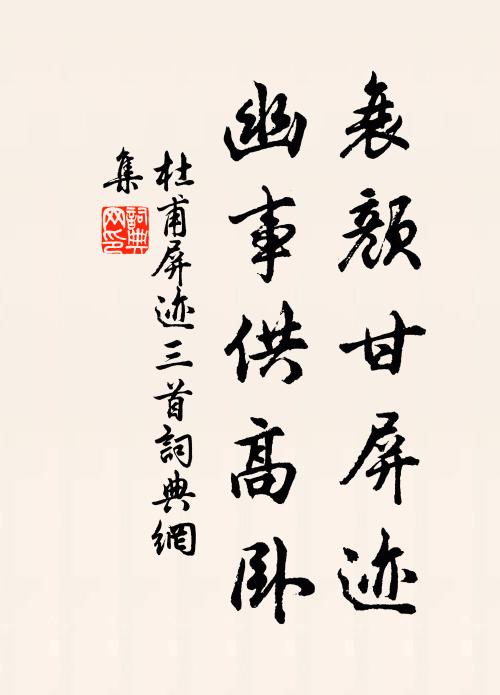 衰颜甘屏迹
幽事供高卧
杜甫屏迹三首詞典網
集
詞典
网印